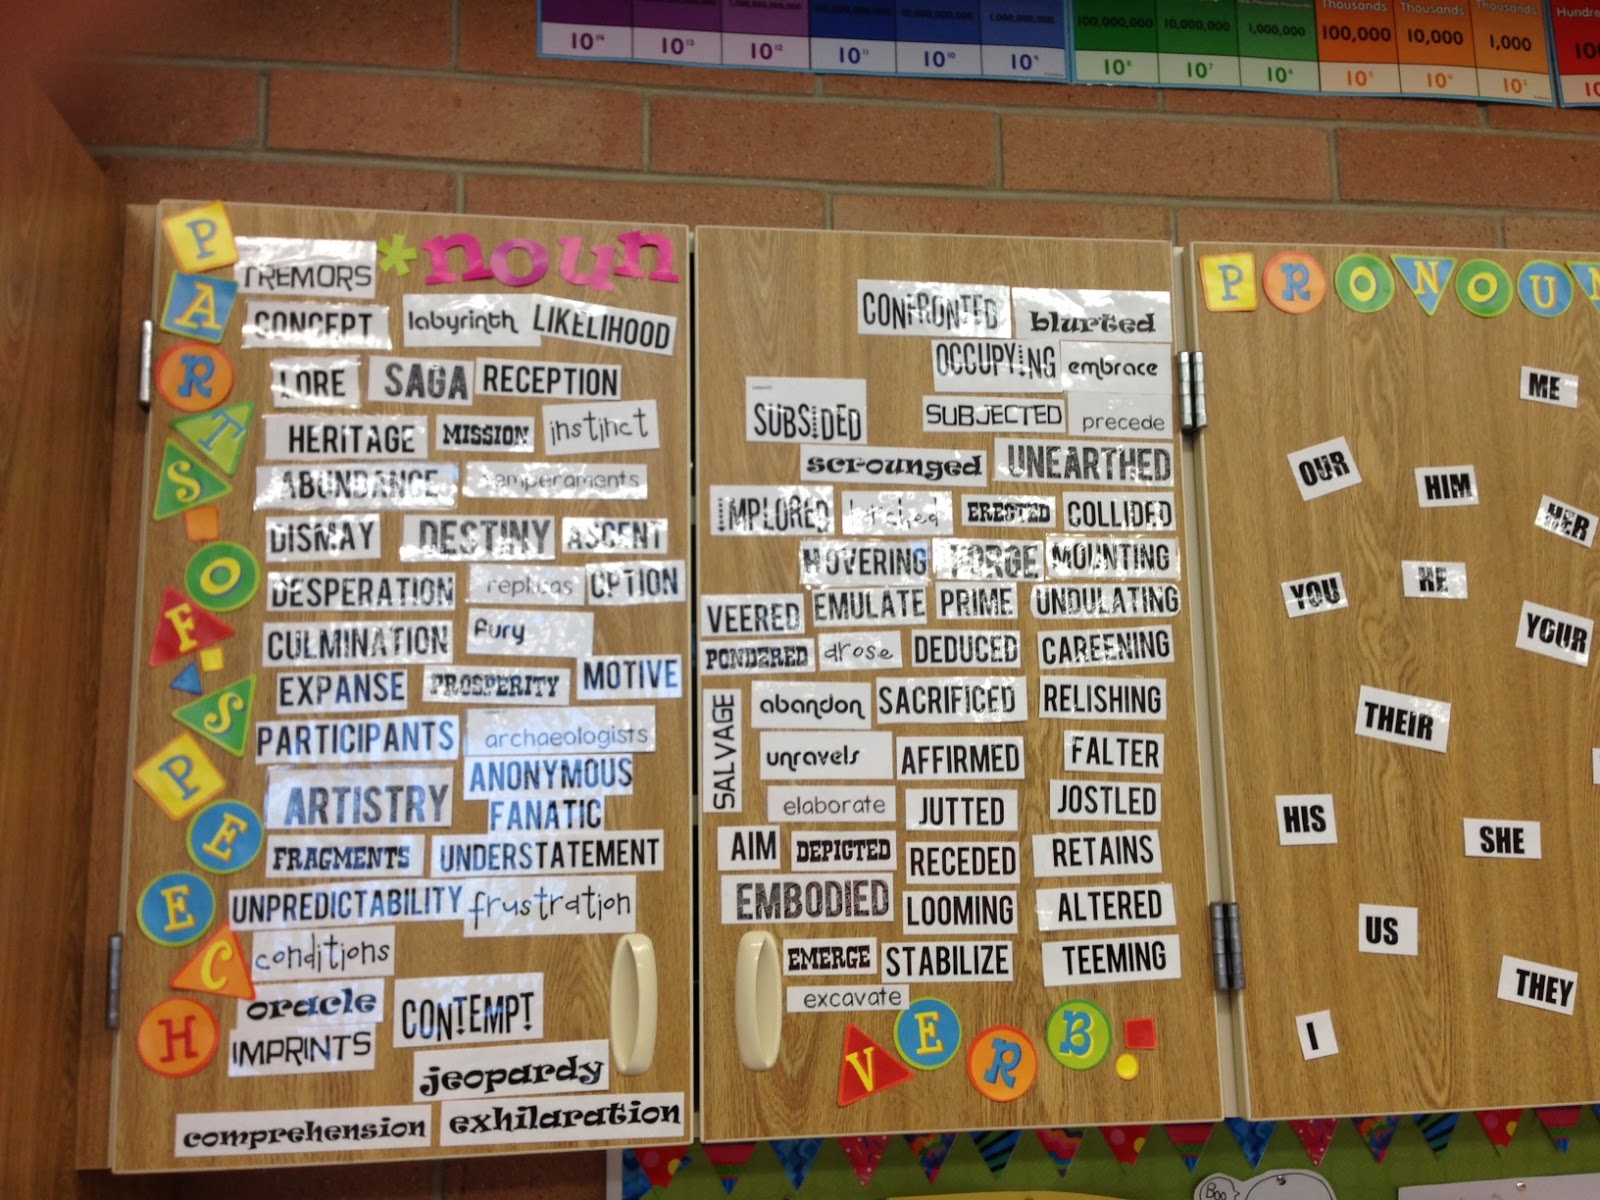 1,000,000,000,000 100,000,000,000 10,000,000,000 1,000,000,000 100,000,000 10,000,000 1,000,000 Thousands 100,000 Thousands 10,000 Thousands 1,000
10¹⁴ 10¹³ 10¹² 10¹¹ 10¹⁰ 10⁹ 10⁸ 10⁷ 10⁶ 10⁵ 10⁴ 10³
PARTS OF SPEECH
*noun
TREMORS
CONCEPT labyrinth LIKELIHOOD
LORE SAGA RECEPTION
HERITAGE MISSION instinct
ABUNDANCE temperaments
DISMAY DESTINY ASCENT
DESPERATION replicas OPTION
CULMINATION fury
EXPANSE PROSPERITY MOTIVE
PARTICIPANTS archaeologists
ARTISTRY ANONYMOUS
FANATIC
FRAGMENTS UNDERSTATEMENT
UNPREDICTABILITY frustration
conditions
oracle CONTEMPT
IMPRINTS
jeopardy
comprehension exhilaration
CONFRONTED blurted
OCCUPYING embrace
SUBSIDED SUBJECTED precede
scrounged UNEARTHED
IMPLORED ERECTED COLLIDED
HOVERING FORGE MOUNTING
VEERED EMULATE PRIME UNDULATING
PONDERED arose DEDUCED CAREENING
SALVAGE abandon SACRIFICED RELISHING
unravels AFFIRMED FALTER
elaborate JUTTED JOSTLED
AIM DEPICTED RECEDED RETAINS
EMBODIED LOOMING ALTERED
EMERGE STABILIZE TEEMING
excavate
VERB
PRONOUN
ME
OUR HIM
HER
YOU HE
YOUR
THEIR
HIS SHE
US
THEY
I
Boo